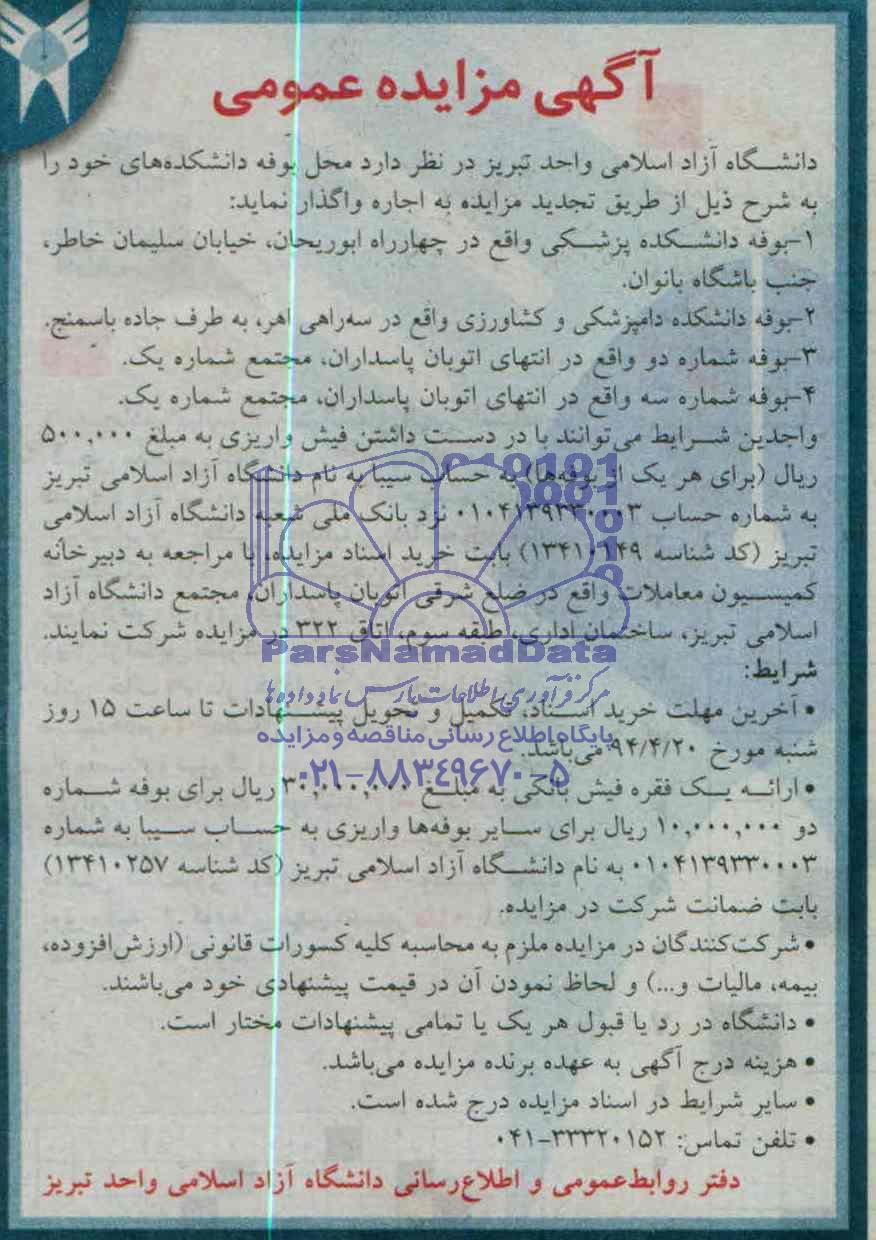 آگهی مزایده عمومی
دانشگاه آزاد اسلامی واحد تبریز در نظر دارد محل بوفه دانشکده‌های خود را
به شرح ذیل از طریق تجدید مزایده به اجاره واگذار نماید:
۱-بوفه دانشکده پزشکی واقع در چهارراه ابوریحان، خیابان سلیمان خاطر،
جنب باشگاه بانوان.
۲-بوفه دانشکده دامپزشکی و کشاورزی واقع در سه‌راهی اهر، به طرف جاده باسمنج.
۳-بوفه شماره دو واقع در انتهای اتوبان پاسداران، مجتمع شماره یک.
۴-بوفه شماره سه واقع در انتهای اتوبان پاسداران، مجتمع شماره یک.
واجدین شرایط می‌توانند با در دست داشتن فیش واریزی به مبلغ ۵۰۰,۰۰۰
ریال (برای هر یک از بوفه‌ها) به حساب سیبا به نام دانشگاه آزاد اسلامی تبریز
به شماره حساب ۰۱۰۴۱۳۹۳۳۰۰۰۳ نزد بانک ملی شعبه دانشگاه آزاد اسلامی
تبریز (کد شناسه ۱۳۴۱۰۲۴۹) بابت خرید اسناد مزایده، با مراجعه به دبیرخانه
کمیسیون معاملات واقع در ضلع شرقی اتوبان پاسداران، مجتمع دانشگاه آزاد
اسلامی تبریز، ساختمان اداری، طبقه سوم، اتاق ۳۲۲ در مزایده شرکت نمایند.
ParsNamadData
شرایط:
مرکز فرآوری اطلاعات پارس نماد داده‌ها
• آخرین مهلت خرید اسناد، تکمیل و تحویل پیشنهادات تا ساعت ۱۵ روز
پایگاه اطلاع رسانی مناقصه و مزایده
شنبه مورخ ۹۴/۴/۲۰ می‌باشد.
۰۲۱-۸۸۳۴۹۶۷۰-۵
• ارائه یک فقره فیش بانکی به مبلغ ۳۰,۰۰۰,۰۰۰ ریال برای بوفه شماره
دو ۱۰,۰۰۰,۰۰۰ ریال برای سایر بوفه‌ها واریزی به حساب سیبا به شماره
۰۱۰۴۱۳۹۳۳۰۰۰۳ به نام دانشگاه آزاد اسلامی تبریز (کد شناسه ۱۳۴۱۰۲۵۷)
بابت ضمانت شرکت در مزایده.
• شرکت‌کنندگان در مزایده ملزم به محاسبه کلیه کسورات قانونی (ارزش‌افزوده،
بیمه، مالیات و...) و لحاظ نمودن آن در قیمت پیشنهادی خود می‌باشند.
• دانشگاه در رد یا قبول هر یک یا تمامی پیشنهادات مختار است.
• هزینه درج آگهی به عهده برنده مزایده می‌باشد.
• سایر شرایط در اسناد مزایده درج شده است.
• تلفن تماس: ۳۳۳۲۰۱۵۲-۰۴۱
دفتر روابط‌عمومی و اطلاع‌رسانی دانشگاه آزاد اسلامی واحد تبریز